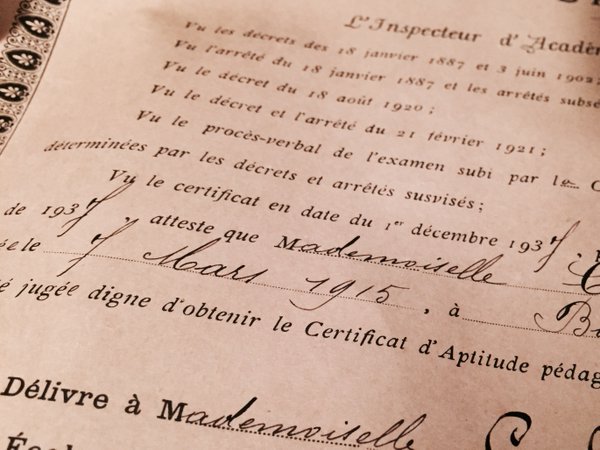 L'Inspecteur d'Acadé
Vu les décrets des 18 janvier 1887 et 3 juin 1902;
Vu l'arrêté du 18 janvier 1887 et les arrêtés subsé
Vu le décret du 18 août 1920;
Vu le décret et l'arrêté du 21 février 1921;
Vu le procès-verbal de l'examen subi par le C
déterminées par les décrets et arrêtés susvisés;
Vu le certificat en date du 1er décembre 1937,
de 1937, atteste que Mademoiselle
ée le 7 Mars 1915, à
é jugée digne d'obtenir le Certificat d'Aptitude pédag
Délivre à Mademoiselle
École